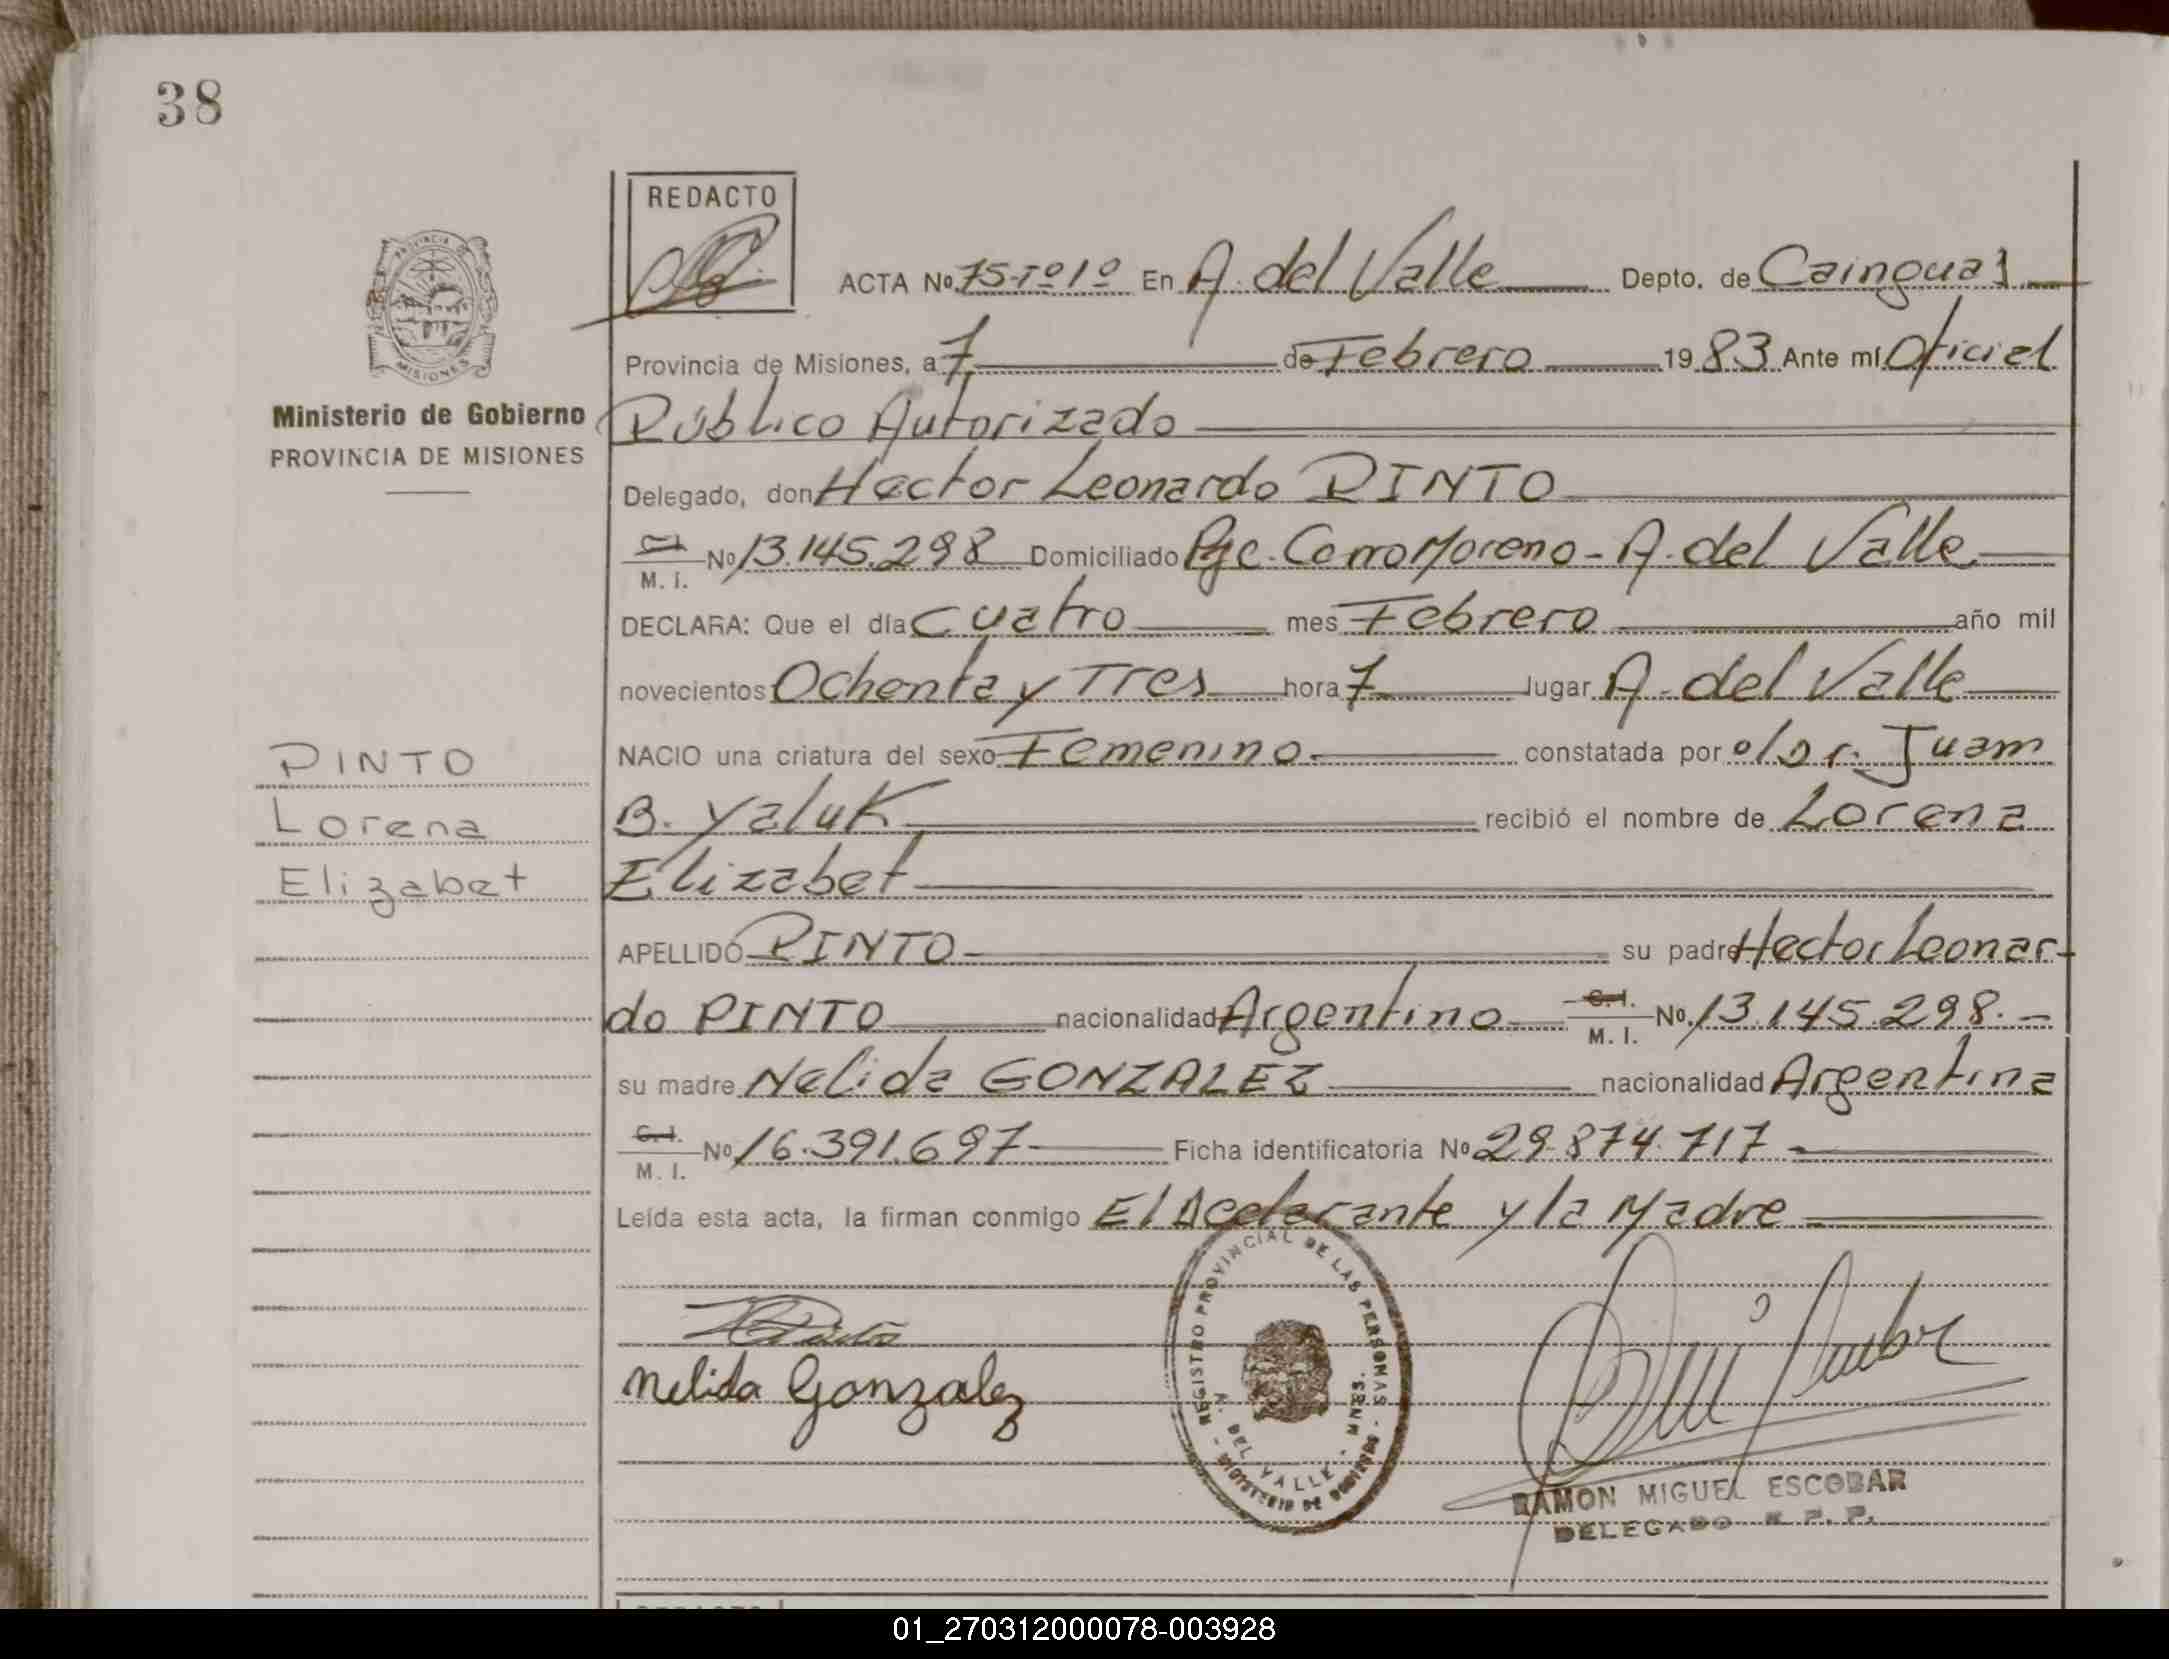 38
REDACTO
ACTA No. 75-Tº1º En A. del Valle Depto. de Cainguas
Provincia de Misiones, a 7 de Febrero 1983 Ante mí Oficial
Público Autorizado
Delegado, don Hector Leonardo PINTO
C.I. M. I. No 13.145.298 Domiciliado Pje. Cerro Moreno - A. del Valle
DECLARA: Que el día cuatro mes Febrero año mil
novecientos Ochenta y Tres hora 7 lugar A. del Valle
NACIO una criatura del sexo Femenino constatada por el Dr. Juam
B. Yaluk recibió el nombre de Lorena
Elizabet
APELLIDO PINTO su padre Hector Leonar-
do PINTO nacionalidad Argentino C.I. M. I. No. 13.145.298.-
su madre Nelida GONZALEZ nacionalidad Argentina
C.I. M. I. No 16.391.697 Ficha identificatoria No 29.874.717
Leída esta acta, la firman conmigo El Declarante y la Madre
PROVINCIA DE
MISIONES
Ministerio de Gobierno
PROVINCIA DE MISIONES
PINTO
Lorena
Elizabet
Pinto
Nelida Gonzalez
REGISTRO PROVINCIAL DE LAS PERSONAS - MINISTERIO DE GOBIERNO -
A. DEL VALLE - MNES.
RAMON MIGUEL ESCOBAR
DELEGADO R. P. P.
01_270312000078-003928